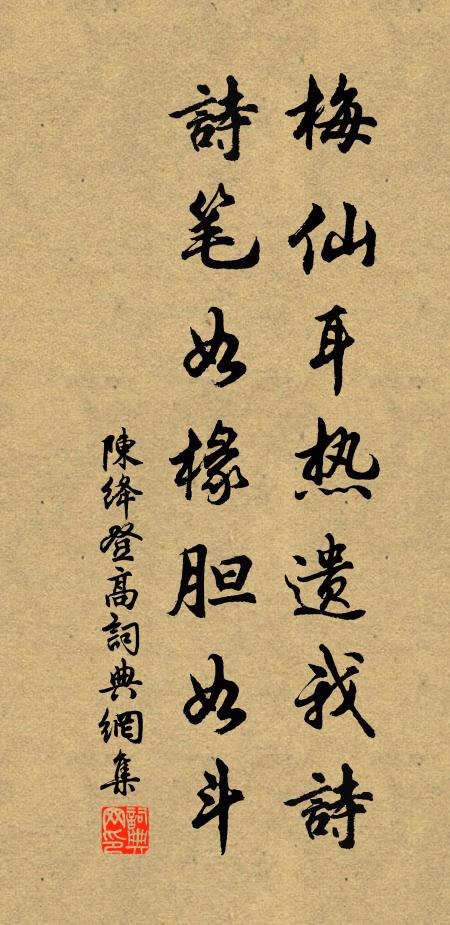 梅仙耳热遗我詩
詩笔如椽胆如斗
陳绛登高詞典網集
詞典網印